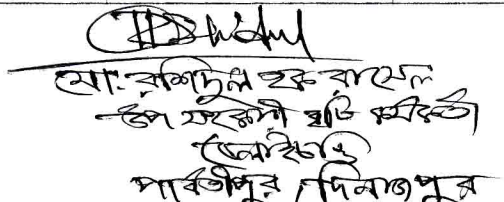 মো: রশিদুল হক রাসেল
উপ সহকারী কৃষি কর্মকর্তা
বেলাইচন্ডি
পার্বতীপুর, দিনাজপুর